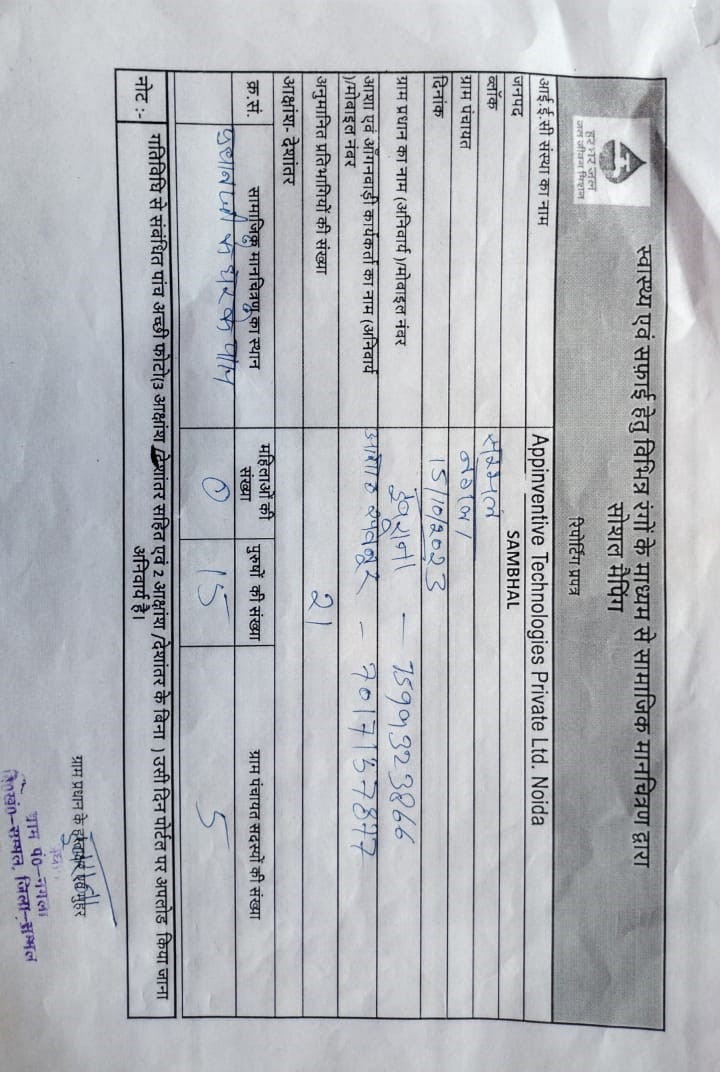 हर घर जल
जल जीवन मिशन
स्वास्थ्य एवं सफ़ाई हेतु विभिन्न रंगों के माध्यम से सामाजिक मानचित्रण द्वारा
सोशल मैपिंग
रिपोर्टिंग प्रपत्र
आई.ई.सी संस्था का नाम Appinventive Technologies Private Ltd. Noida
जनपद SAMBHAL
ब्लॉक सम्भल
ग्राम पंचायत नगला
दिनांक 15/10/2023
ग्राम प्रधान का नाम (अनिवार्य )/मोबाइल नंबर
आशा एवं आँगनवाड़ी कार्यकर्ता का नाम (अनिवार्य
)/मोबाइल नंबर - 7017157877
अनुमानित प्रतिभागियों की संख्या 21
आक्षांश- देशांतर
क्र.सं. सामाजिक मानचित्रण का स्थान महिलाओं की संख्या पुरुषों की संख्या ग्राम पंचायत सदस्यों की संख्या
के घर के पास 0 15 5
नोट :- गतिविधि से संबंधित पांच अच्छी फोटो(3 आक्षांश /देशांतर सहित एवं 2 आक्षांश /देशांतर के बिना ) उसी दिन पोर्टल पर अपलोड किया जाना
अनिवार्य है।
ग्राम प्रधान के हस्ताक्षर एवं मुहर
ग्राम पं०-नगला
वि०खं०-सम्भल, जिला-सम्भल